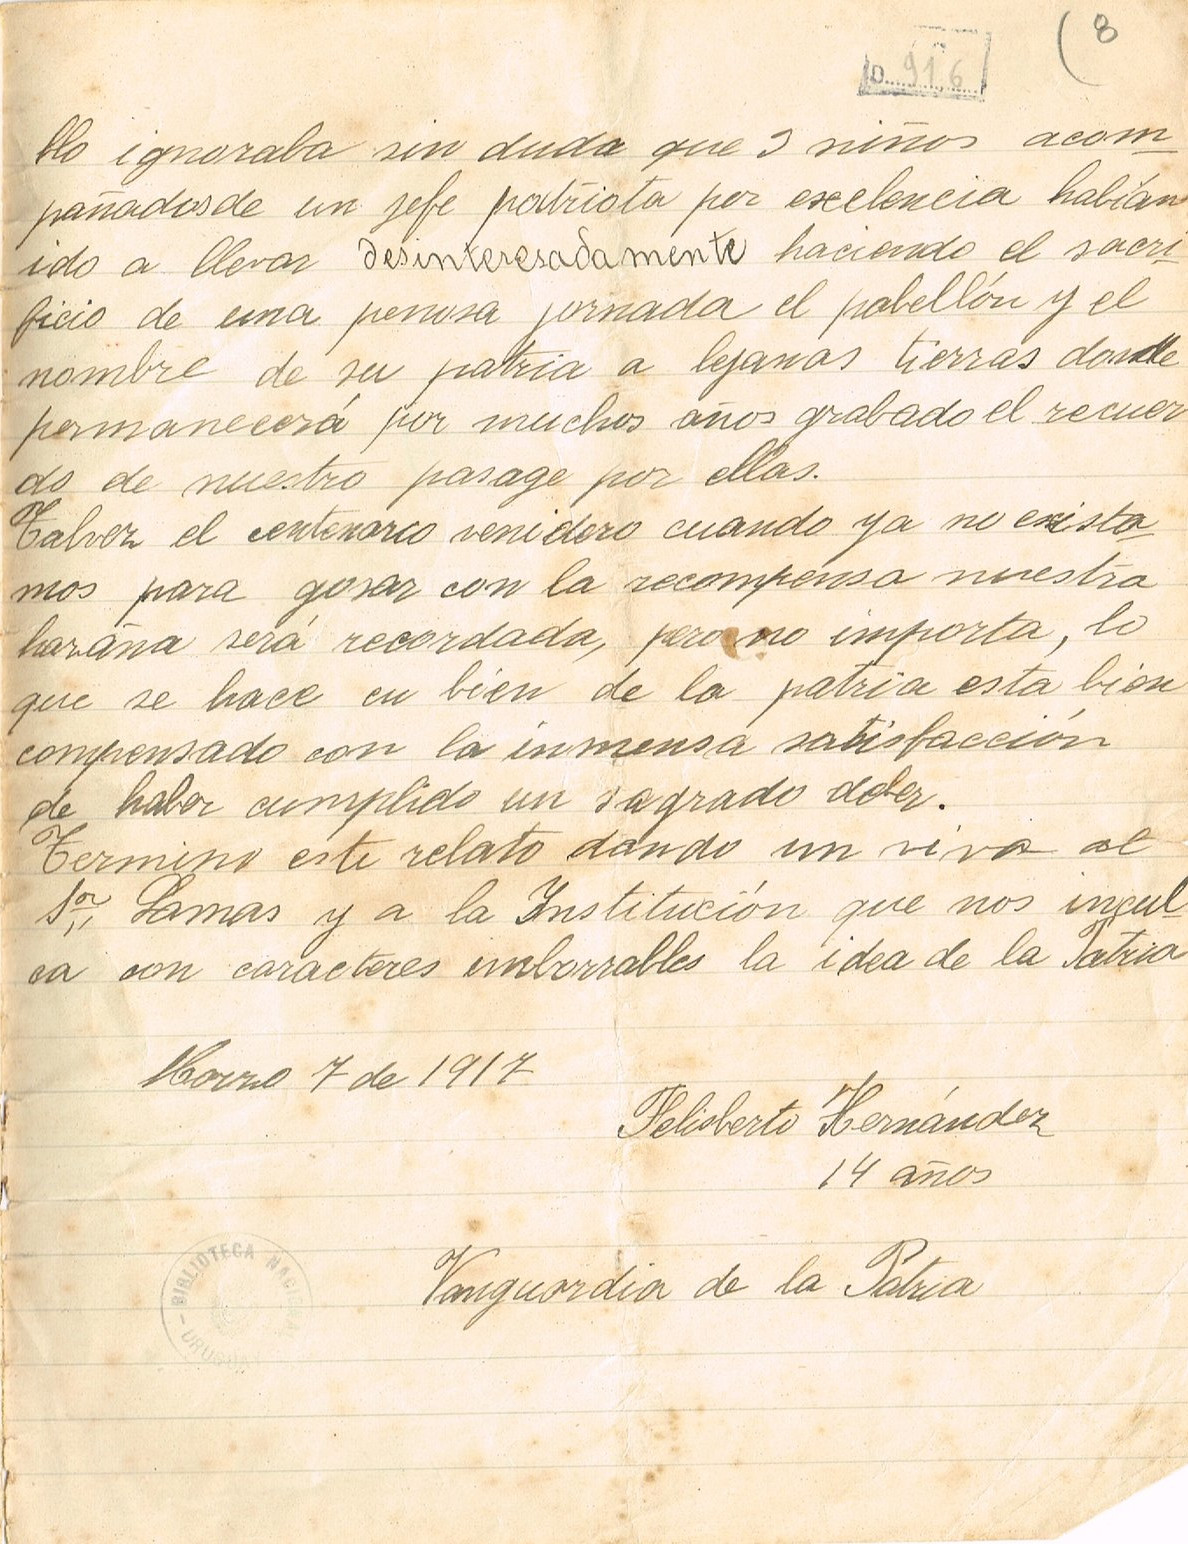 (8
D. 916
blo ignoraba sin duda que 3 niños acom-
pañadosde un jefe patriota por exelencia habían
ido a llevar desinteresadamente haciendo el sacri-
ficio de una penosa jornada el pabellón y el
nombre de su patria a lejanas tierras donde
permanecerá por muchos años grabado el recuer
do de nuestro pasage por ellas.
Talvez el centenario venidero cuando ya no exista-
mos para gosar con la recompensa nuestra
hazaña será recordada, pero no importa, lo
que se hace en bien de la patria esta bien
compensado con la inmensa satisfacción
de haber cumplido un sagrado deber.
Termino este relato dando un viva al
Sor. Lamas y a la Institución que nos incul-
ca con caracteres imborrables la idea de la Patria
Marzo 7 de 1917
Felisberto Hernández
14 años
Vanguardia de la Patria
BIBLIOTECA NACIONAL
- URUGUAY